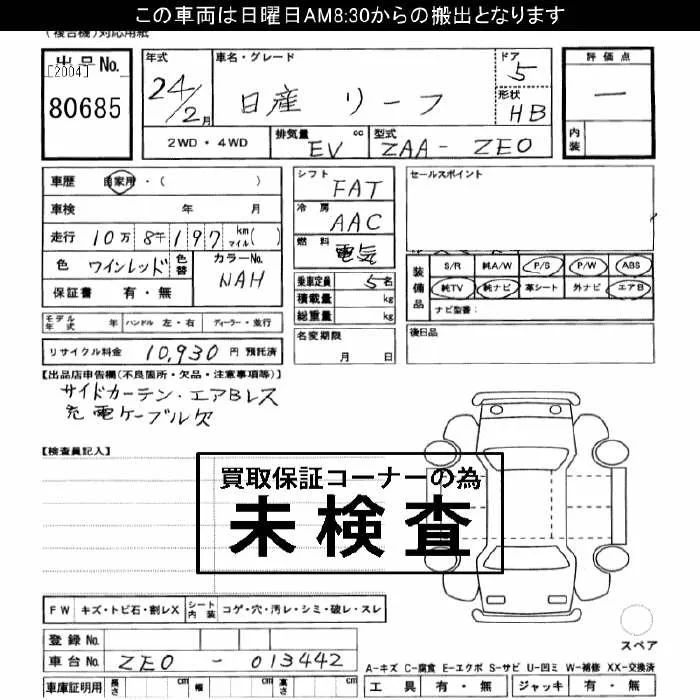 この車両は日曜日AM8:30からの搬出となります
(複合機)対応用紙
出品No.
[2004]
80685
年式
24/2月
車名・グレード
日産 リーフ
ドア
5
形状
HB
評価点
一
内装
2WD・4WD
排気量 cc
EV
型式
ZAA-ZE0
車歴 自家用・( )
車検 年 月
走行 10万8千197 km マイル( )
色 ワインレッド 色替
カラーNo.
NAH
保証書 有・無
シフト
FAT
冷房
AAC
燃料
電気
乗車定員 5名
積載量 kg
総重量 kg
セールスポイント
装備品
S/R 純A/W P/S P/W ABS
純TV 純ナビ 革シート 外ナビ エアB
ナビ型番:
モデル年式 年 ハンドル 左・右 ディーラー・並行
名変期限
月 日
後日品
リサイクル料金 10,930円 預託済
【出品店申告欄(不良箇所・欠品・注意事項等)】
サイドカーテン・エアBレス
充電ケーブル欠
【検査員記入】
買取保証コーナーの為
未検査
FW キズ・トビ石・割レX シート内装 コゲ・穴・汚レ・シミ・破レ・スレ
登録No.
車台No. ZE0-013442
スペア
A-キズ C-腐食 E-エクボ S-サビ U-凹ミ W-補修 XX-交換済
車庫証明用 長さ cm 幅 cm 高さ cm
工具 有・無 ジャッキ 有・無